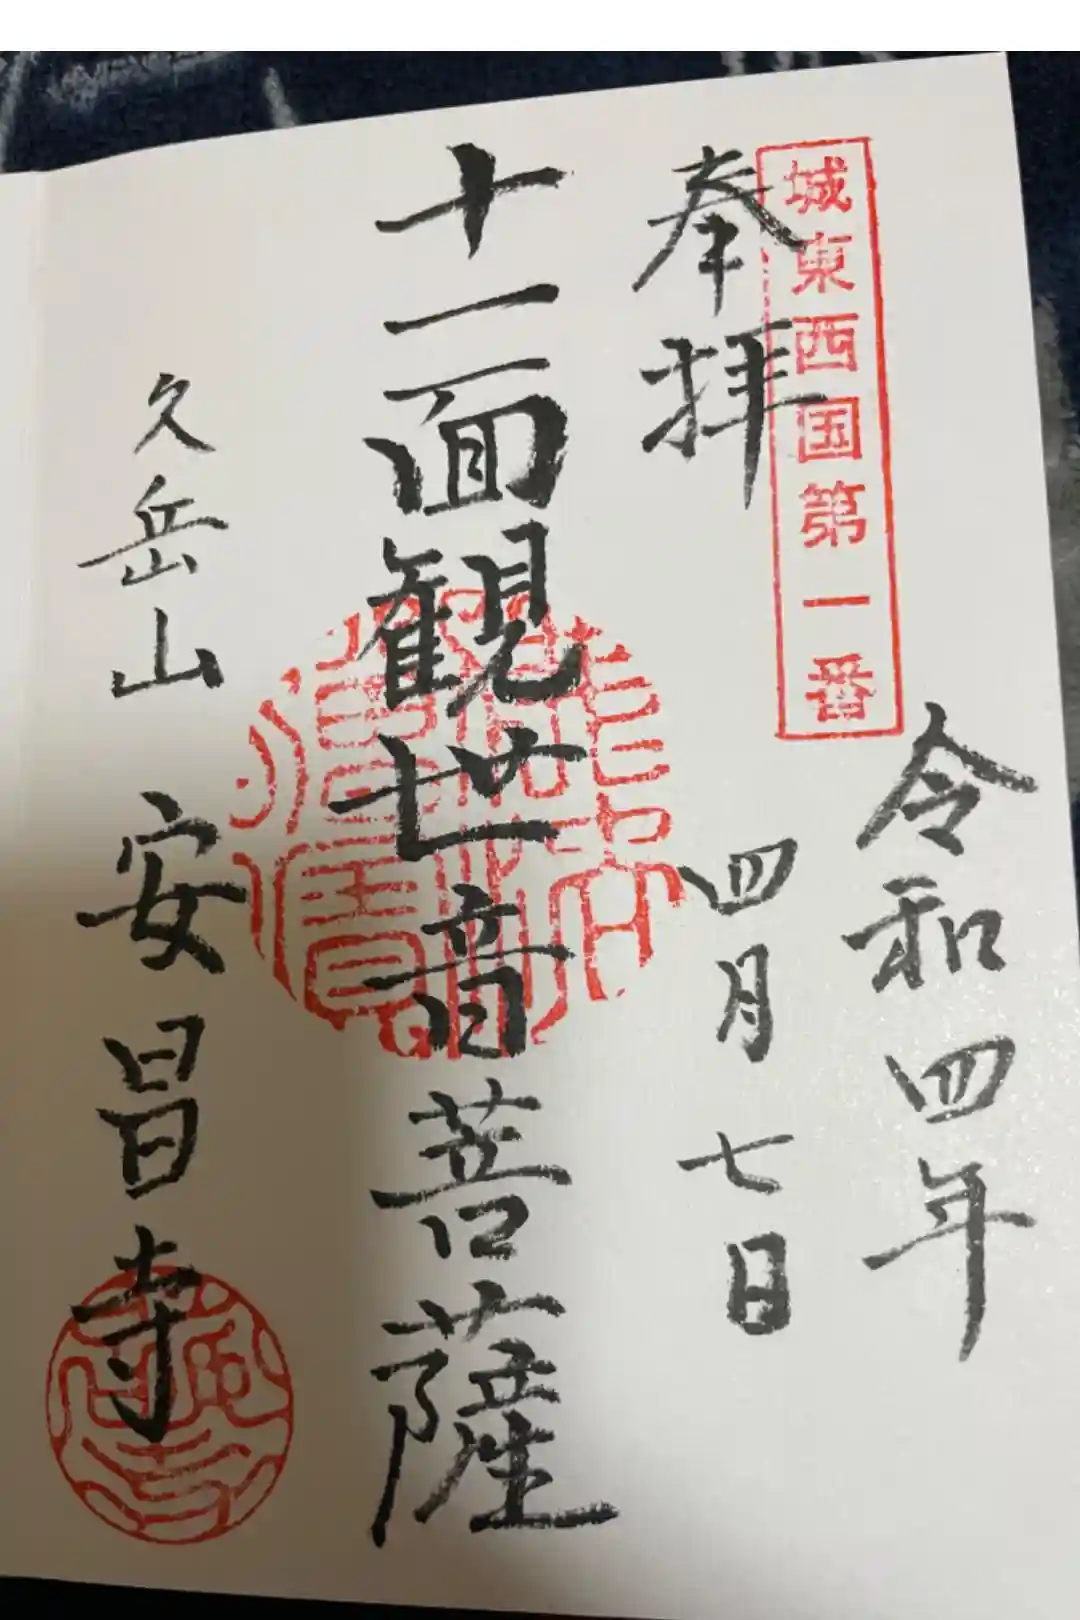 城東西国第一番
令和四年
四月七日
奉拝
十一面観世音菩薩
久岳山 安昌寺